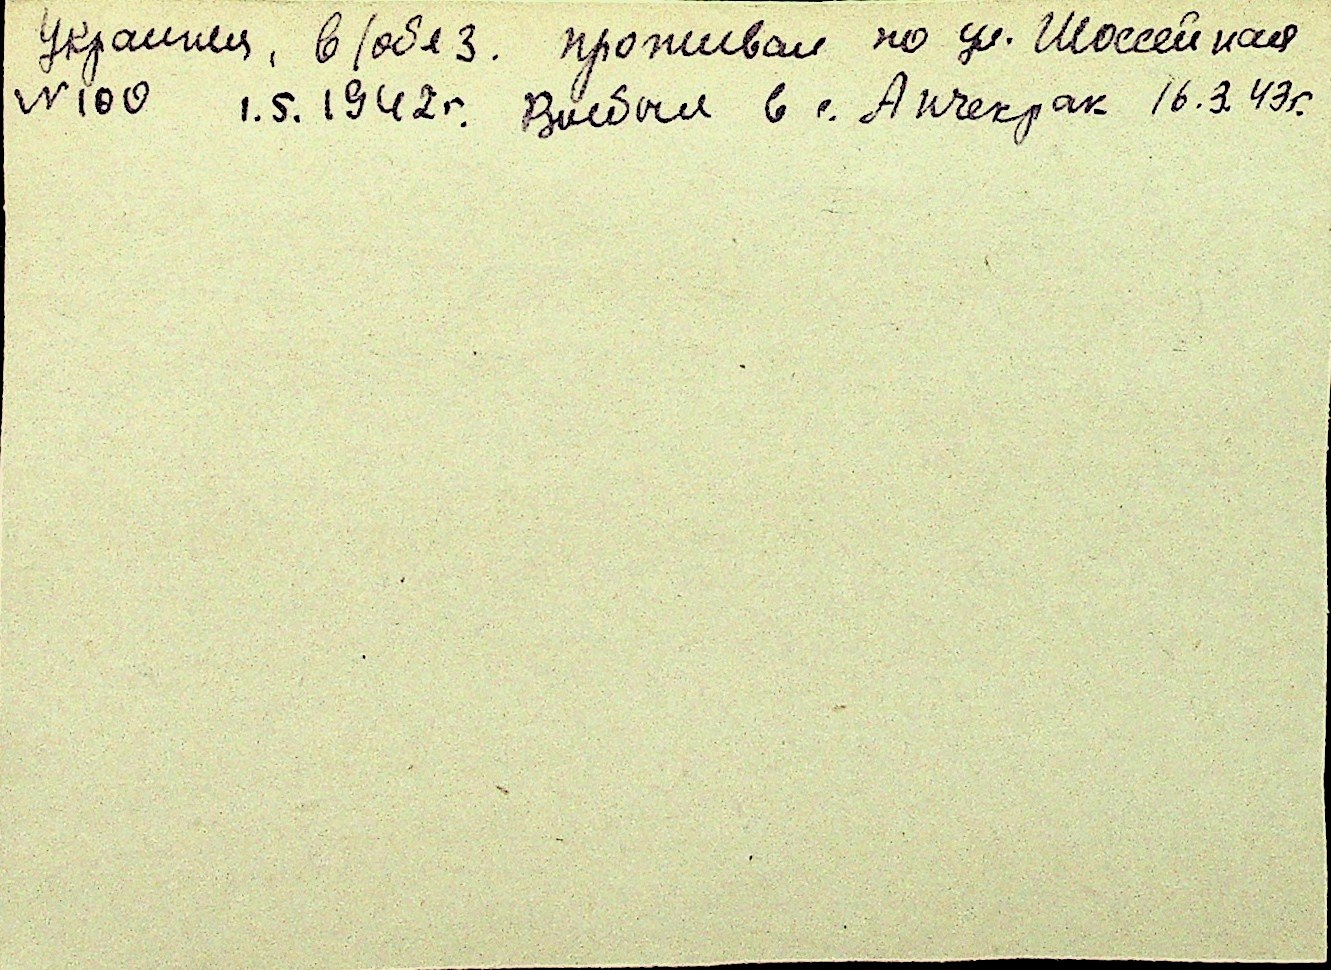 Украинец, в/обяз. проживал по ул. Шоссейная
№ 100 1.5.1942г. Выбыл в с. Анчекрак 16.3.43г.